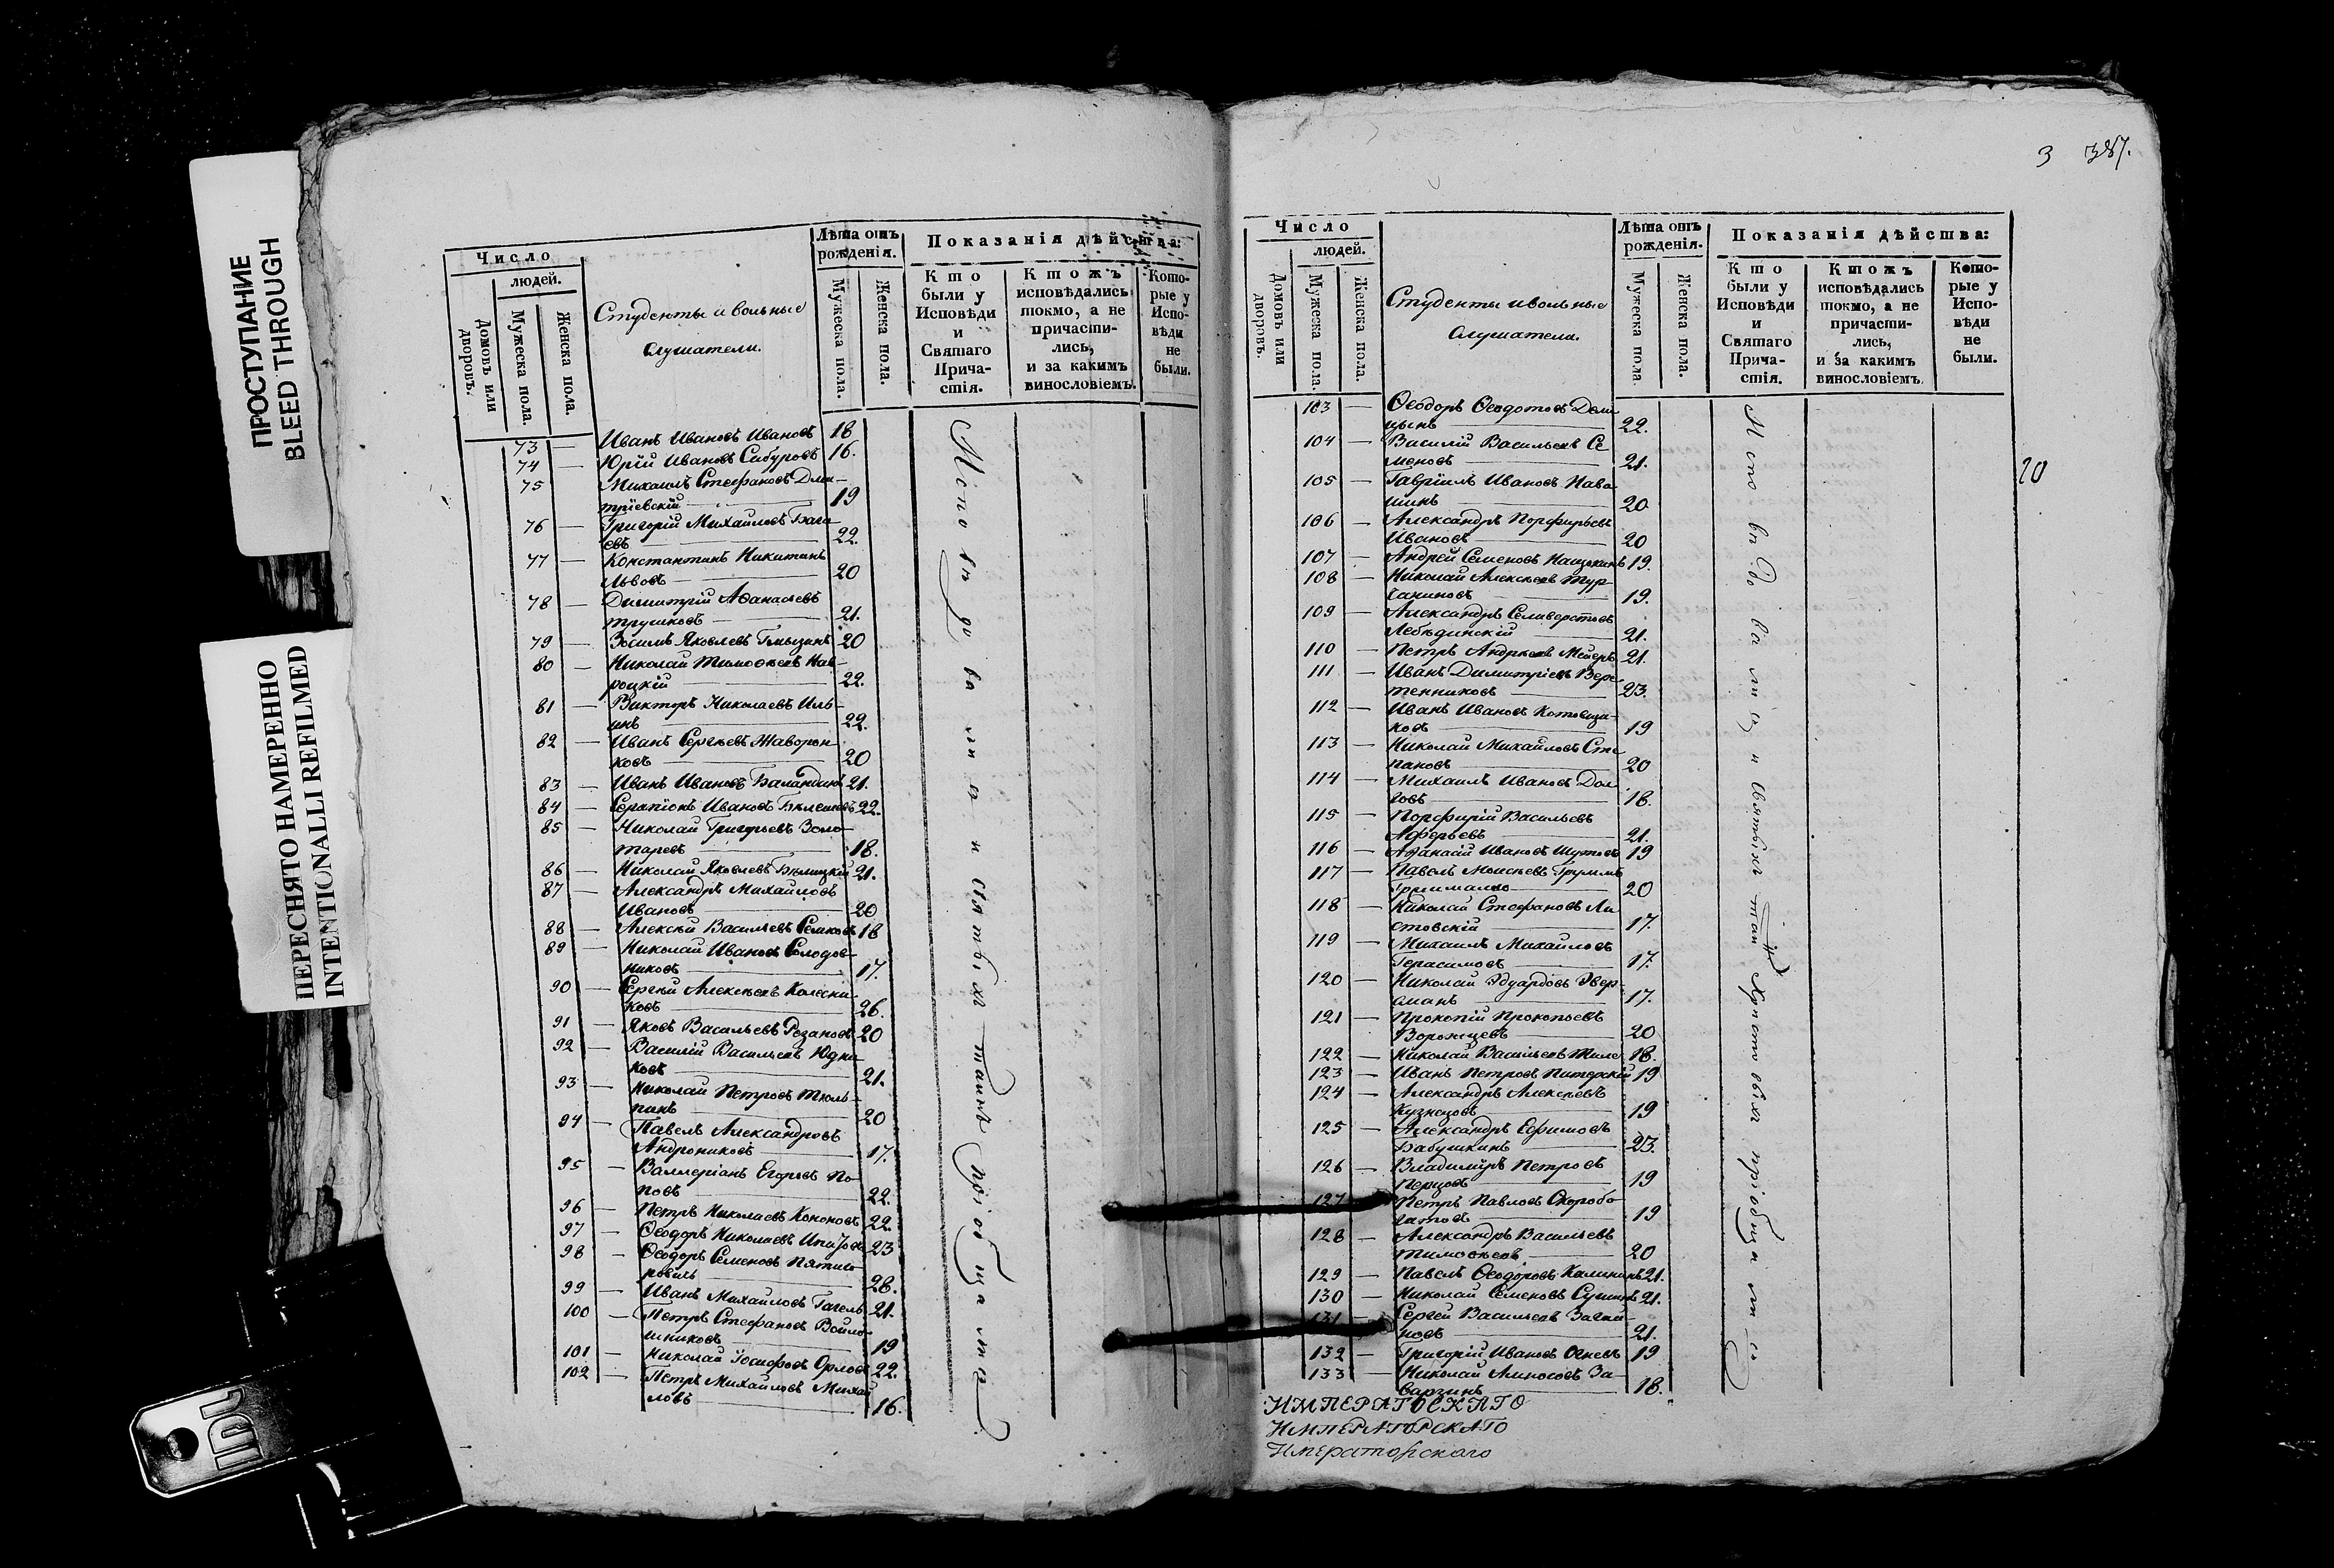 ПРОСТУПАНИЕ
BLEED THROUGH
ПЕРЕСНЯТО НАМЕРЕННО
INTENTIONALLI REFILMED
Число
людей.
Домовъ или дворовъ.
Мужеска пола.
Женска пола.
Студенты и вольные
слушатели.
Лѣта отъ
рожденія.
Мужеска пола.
Женска пола.
Показанія дѣйства:
Кто
были у
Исповѣди
и
Святаго
Прича-
стія.
Ктожъ
исповѣдались
токмо, а не
причасти-
лись,
и за какимъ
винословіемъ.
Кото-
рые у
Испо-
вѣди
не
были.
73 — Иванъ Ивановъ Ивановъ 18
74 — Юрій Ивановъ Сабуровъ 16.
75 Михаилъ Стефановъ Дми-
тріевскій 19
76 — Григорій Михайловъ Бага-
евъ 22.
77 — Константинъ Никитинъ
Львовъ 20
78 — Димитрій Аѳанасьевъ
Трушковъ 21.
79 — Зосимъ Яковлевъ 20
80 — Николай Тимоѳеевъ Нав-
роцкій 22.
81 — Викторъ Николаевъ Иль-
инъ 22.
82 — Иванъ Сергѣевъ Жаворон-
ковъ 20
83 — Иванъ Ивановъ Баландинъ 21.
84 — Серапіонъ Ивановъ 22.
85 — Николай Григорьевъ Золо-
таревъ 18.
86 — Николай Яковлевъ Бѣлицкій 21.
87 — Александръ Михайловъ
Ивановъ 20
88 — Алексѣй Васильевъ 18
89 — Николай Ивановъ Солодов-
никовъ 17.
90 — Сергѣй Алексѣевъ Колесни-
ковъ 26.
91 — Яковъ Васильевъ Розановъ 20
92 — Василій Васильевъ Юдни-
ковъ 21.
93 — Николай Петровъ Тюль-
пинъ 20
94 — Павелъ Александровъ
Андрониковъ 17.
95 — Валлеріанъ Егоровъ По-
повъ 22.
96 — Петръ Николаевъ Кононовъ 22.
97 — Ѳеодоръ Николаевъ 23
98 — Ѳеодоръ Семеновъ 28.
99 — Иванъ Михайловъ 21.
100 — Петръ Стефановъ Войло-
шниковъ 19
101 — Николай Іосифовъ Орловъ 22.
102 — Петръ Михайловъ Михай-
ловъ 16.
3 387.
Число
людей.
Домовъ или дворовъ.
Мужеска пола.
Женска пола.
Студенты и вольные
слушатели.
Лѣта отъ
рожденія.
Мужеска пола.
Женска пола.
Показанія дѣйства:
Кто
были у
Исповѣди
и
Святаго
Прича-
стія.
Ктожъ
исповѣдались
токмо, а не
причасти-
лись,
и за какимъ
винословіемъ.
Кото-
рые у
Испо-
вѣди
не
были.
103 — Ѳеодоръ Ѳеодотовъ 22.
104 — Василій Васильевъ Се
меновъ 21.
105 — Гавріилъ Ивановъ Нава
шинъ 20
106 — Александръ Порфирьевъ
Ивановъ 20
107 — Андрей Семеновъ Нащокинъ 19.
108 — Николай Алексѣевъ Тур-
чаниновъ 19.
109 — Александръ Селиверстовъ
Лебединскій 21.
110 — Петръ Андреевъ Мейеръ 21.
111 — Иванъ Димитріевъ Вере
тенниковъ 23.
112 — Иванъ Ивановъ 19
113 — Николай Михайловъ Сте
пановъ 20
114 — Михаилъ Ивановъ Дол
говъ 18.
115 — Порфирій Васильевъ
Аѳерьевъ 21.
116 — Аѳанасій Ивановъ Шутовъ 19
117 — Павелъ Моисеевъ Груммъ
Гримайло 20
118 — Николай Стефановъ Ли
стовскій 17.
119 — Михаилъ Михайловъ
Герасимовъ 17.
120 — Николай Эдуардовъ Эвер-
сманъ 17.
121 — Прокопій Прокопьевъ
Воронцевъ 20
122 — Николай Васильевъ 18.
123 — Иванъ Петровъ Питерскій 19
124 — Александръ Алексѣевъ
Кузнецовъ 19
125 — Александръ Ефимовъ
Бабушкинъ 23.
126 — Владиміръ Петровъ
Перцовъ 19
127 Петръ Павловъ Скоробо-
гатовъ 19
128 — Александръ Васильевъ
Тимоѳеевъ 20
129 — Павелъ Ѳеодоровъ Калининъ 21.
130 — Николай Семеновъ 21.
131 Сергѣй Васильевъ 21.
132 — Григорій Ивановъ Огневъ 19
133 — Николай Амносовъ За-
варзинъ 18.
20
Исповѣдовались и святыхъ таинъ пріобщались
Исповѣдовались и святыхъ таинъ Христовыхъ пріобщались
ИМПЕРАТОСКАГО
ИМПЕРАТОРСКАГО
Императорскаго